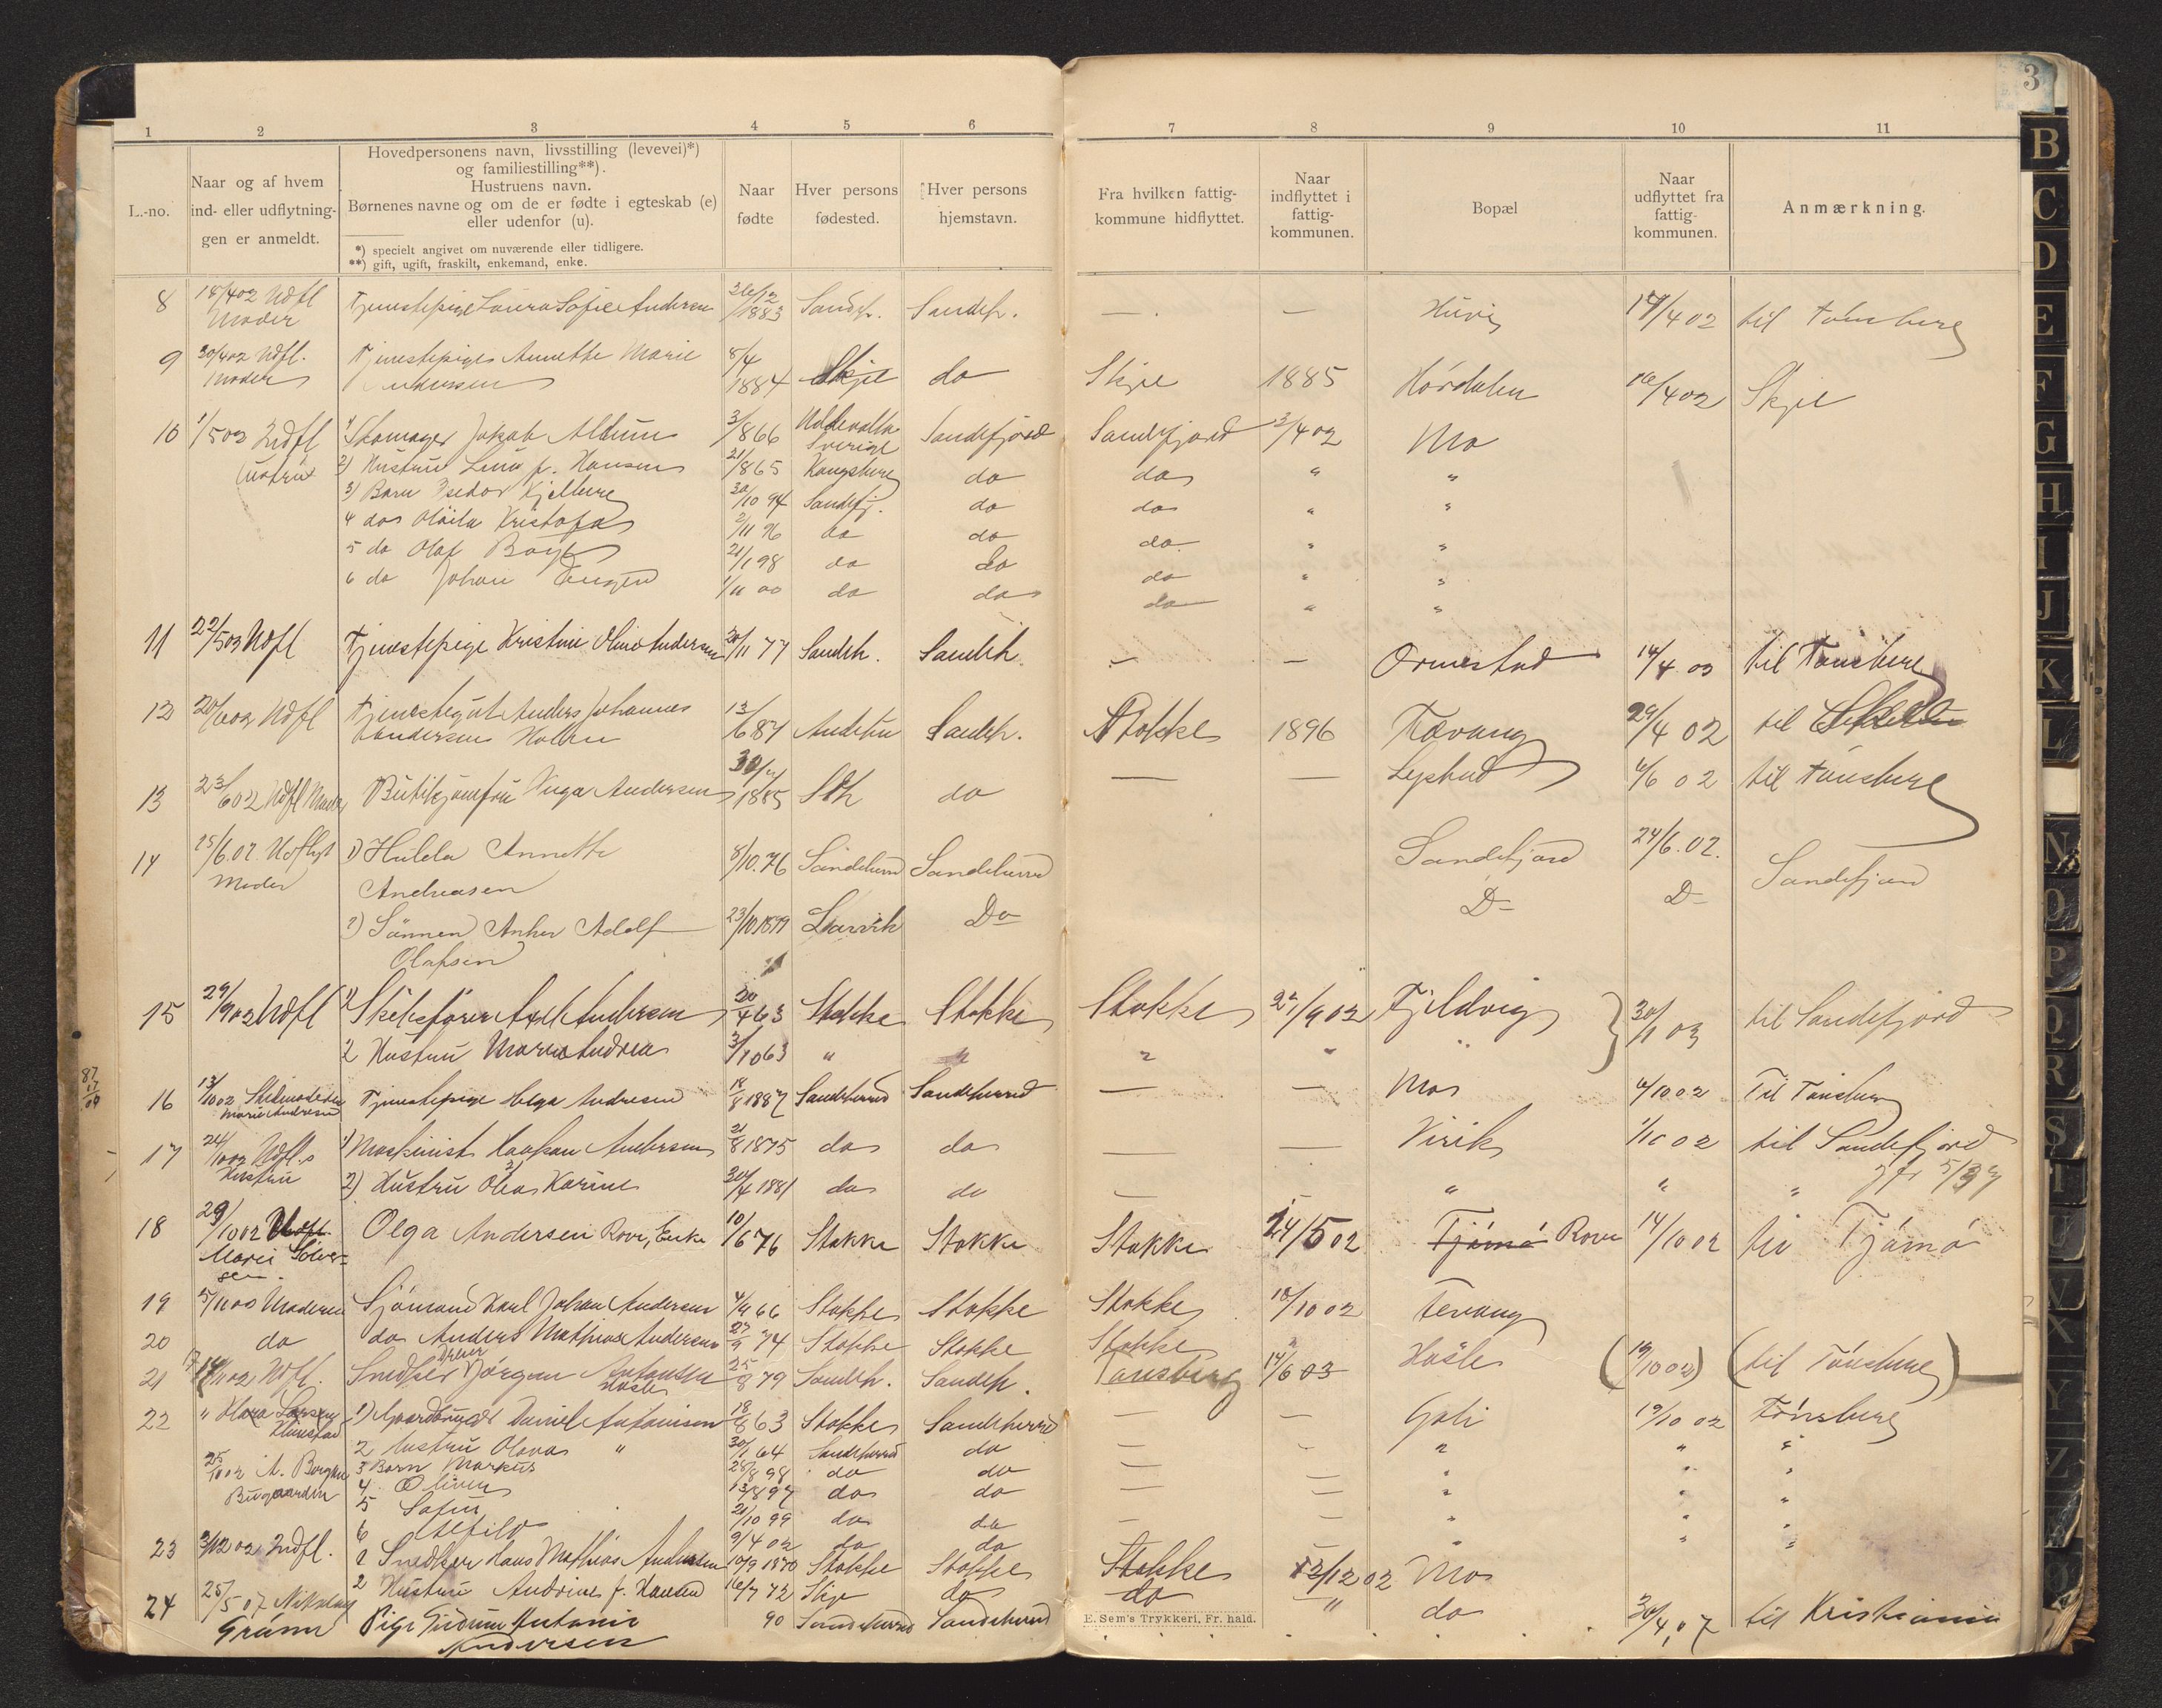 3
1 2 3 4 5 6 7 8 9 10 11
L.-no.
Naar og af hvem
ind- eller udflytnin-
gen er anmeldt.
Hovedpersonens navn, livsstilling (levevei)*)
og familiestilling**).
Hustruens navn.
Børnenes navne og om de er fødte i egteskab (e)
eller udenfor (u).
*) specielt angivet om nuværende eller tidligere.
**) gift, ugift, fraskilt, enkemand, enke.
Naar
fødte
Hver persons
fødested.
Hver persons
hjemstavn.
Fra hvilken fattig-
kommune hidflyttet.
Naar
indflyttet i
fattig-
kommunen.
Bopæl
Naar
udflyttet fra
fattig-
kommunen.
Anmærkning.
8 18/4 02 Udfl Tjenestepige Laura Sofie Andersen 26/12 Sandeh. Sandeh. — — 17/4 02 til Tönsberg
Moder 1883
9 30/4 02 Udfl. Tjenestepige Annette Marie 8/4 Skje do Skje 1885 Hördalen 16/4 02 Skje
Moder Andersen 1884
10 1/5 02 Indfl 1) Skomager Jakob 3/ 866 Uddevalla Sandefjord Sandefjord 3/4 02 Mo
Sverige
2) Hustru Lina f. Hansen 21/ 865 Kongsberg do do " "
3) Barn Isedor 30/10 94 Sandefj. do do " "
4 do Kristofa 2/11 96 do do do " "
5 do Olaf 21/1 98 do do do " "
6 do Johan Eugen 1/11 00 do do do " "
11 22/5 02 Udfl Tjenestepige Kristine Olina Andersen 20/11 77 Sandeh. Sandeh. — — Ormestad 14/4 03 til Tönsberg
12 20/6 02 Udfl Tjenestegut Anders Johannes 13/6 87 Andebu Sandeh. Stokke 1896 Tævang 29/4 02 til
Andersen Holm
13 23/6 02 Udfl Moder Butikjomfru Inga Andersen 30/ 1885 Sdh do — — Lystad 4/6 02 til Tönsberg
14 25/6.02. Udflyt 1) Hulda Annette 8/10.76 Sandeherred Sandeherred Sandefjord 24/6.02. Sandefjord
Moder Andreasen D- D-
2) Sönnen Anker Adolf 23/10 1899 Larvik Do
Olafsen
15 29/9 02 Indfl 1) Skibsförer Axel Andersen 20/4 63 Stokke Stokke Stokke 22/9 02 Fjeldvig 30/1 03 til Sandefjord
2 Hustru Maria Andrea 3/10 63 " " " " "
87
17
04
16 13/10 02 Stedmoderen Tjenestepige Helga Andresen 18/8 1887 Sandeherred Sandeherred — — Mo 4/10 02 Til Tönsberg
Marie Andresen
17 24/10 02 Udfl. 1) Maskinist Haakon Andersen 21/8 1875 do do — — Virik 1/10 02 til Sandefjord
Hustru 2) Hustru Olea Karine 20/4 1881 do do — " " "
18 29/10 02 Udfl. Olga Andersen Rove, Enke 10/6 76 Stokke Stokke Stokke 24/5 02 Tjömö Rove 14/10 02 til Tjömö
Marie
19 5/11 00 Moderen Sjömand Karl Johan Andersen 4/9 66 Stokke Stokke Stokke 10/10 02 Tevang
20 do do Anders Mathias Andersen 27/9 74 Stokke Stokke Stokke
21 14/11 02 Udfl. Snedker Jörgen Antonsen 25/8 79 Sandeh. Sandeh. Tönsberg 14/6 03 Hasle (19/10 02) (til Tönsberg)
Hasle
22 " Klara Larsen 1) Gaardbruger Daniel Antonisen 18/8 63 Stokke Sandeherred — — Gjeli 19/10 02 Tönsberg
2 Hustru Olava " 30/1 64 Sandeherred do — " "
25/10 02 A. 3 Barn Markus 28/8 98 do do — " "
Bugaarden 4 13/ 897 do do — " "
5 21/10 99 do do — " "
6 9/4 02 do do
23 3/12 02 Indfl. 1 Snedker Hans Mathias Andersen 10/9 1870 Stokke Stokke Stokke 12/12 02 Mo
2 Hustru Andrine f. Hansen 16/7 72 Skje do do " do
24 25/5 07 Nikolay Pige Gudrun Antonie 90 Sandeherred Sandeherred 30/4,07 til Kristiania
Grönn Andersen
E. Sem's Trykkeri, Fr. hald.
B
C
D
E
F
G
H
I
J
K
L
N
O
P
Q
R
S
T
U
V
X
Y
Z